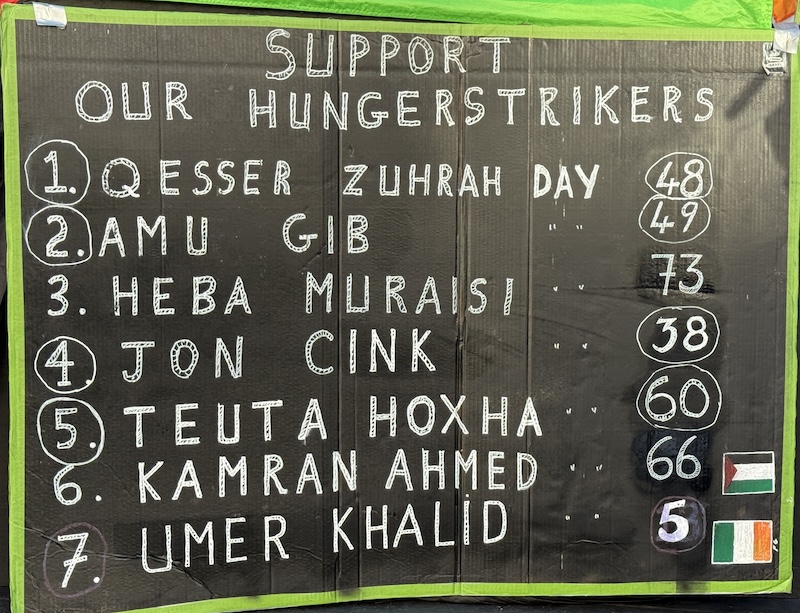 SUPPORT
OUR HUNGERSTRIKERS
1. QESSER ZUHRAH DAY 48
2. AMU GIB " " 49
3. HEBA MURAISI " " 73
4. JON CINK " " 38
5. TEUTA HOXHA " " 60
6. KAMRAN AHMED " " 66
7. UMER KHALID " " 5